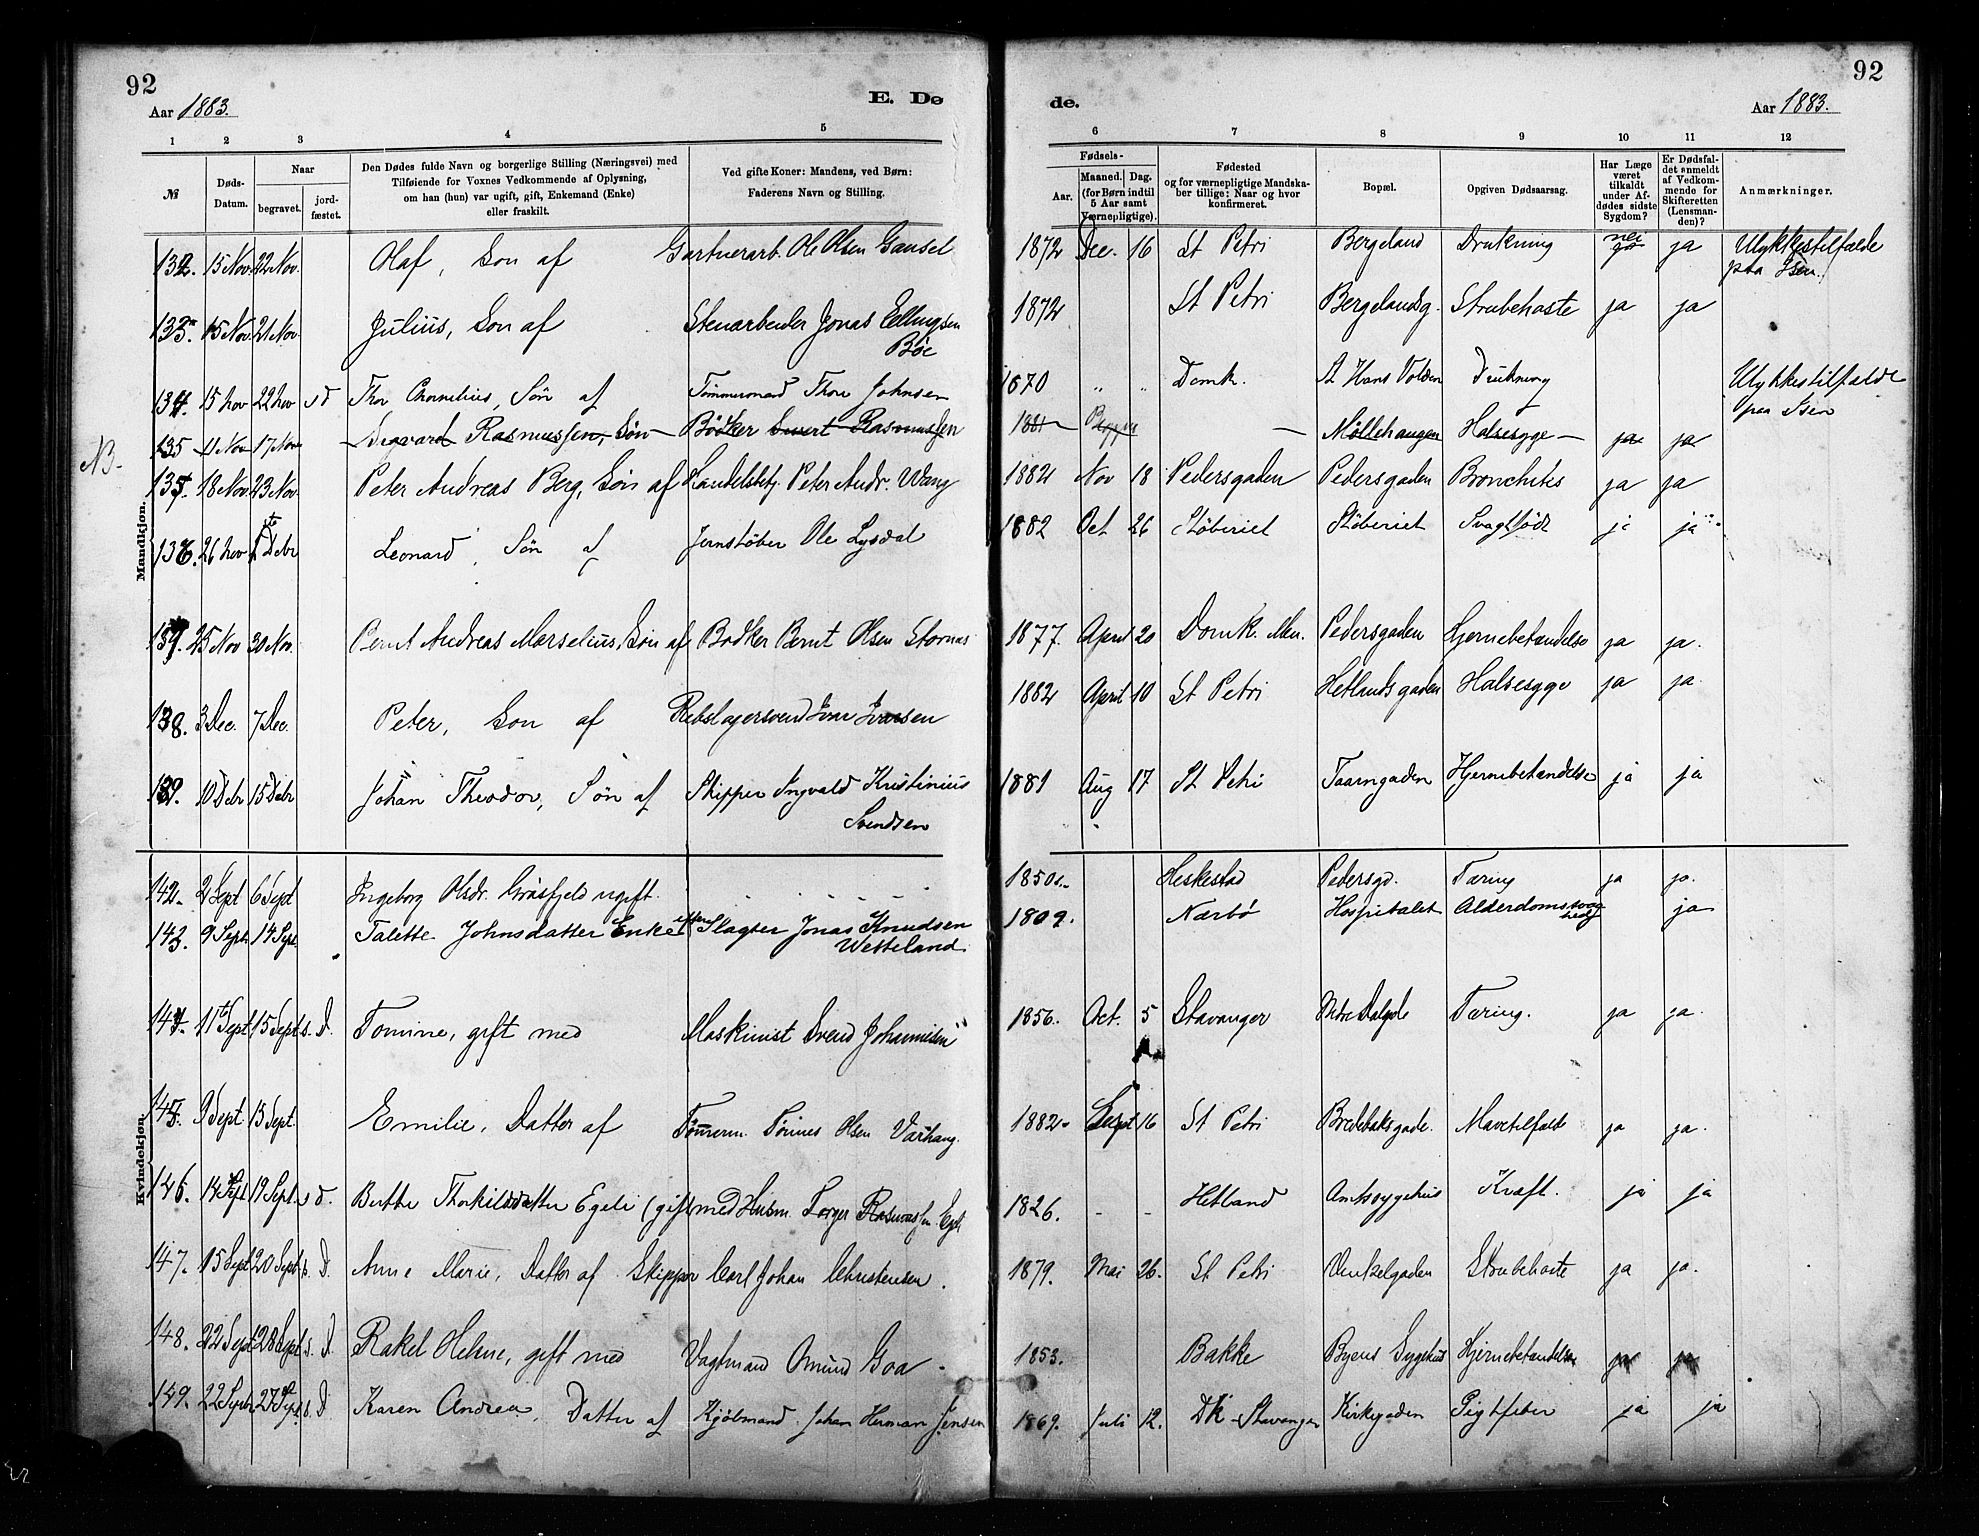 92
Aar 1883.
E. Dø
de.
92
Aar 1883.
1 2 3 4 5 6 7 8 9 10 11 12
№
Døds-Datum.
Naar
begravet.
jord-fæstet.
Den Dødes fulde Navn og borgerlige Stilling (Næringsvei) med
Tilføiende for Voxnes Vedkommende af Oplysning,
om han (hun) var ugift, gift, Enkemand (Enke)
eller fraskilt.
Ved gifte Koner: Mandens, ved Børn:
Faderens Navn og Stilling.
Fødsels-
Aar.
Maaned. Dag.
(for Børn indtil
5 Aar samt
Værnepligtige).
Fødested
og for værnepligtige Mandska-
ber tillige: Naar og hvor
konfirmeret.
Bopæl.
Opgiven Dødsaarsag.
Har Læge
været
tilkaldt
under Af-
dødes sidste
Sygdom?
Er Dødsfal-
det anmeldt
af Vedkom-
mende for
Skifteretten
(Lensman-
den)?
Anmærkninger.
Mandkjøn.
132. 15 Nov. 22 Nov. Olaf, Søn af Gartnerarb. Ole Olsen Gausel 1872 Dec. 16 St Petri Bergeland Drukning nei ja Ulykkestilfælde
paa Isen.
133. 15 Nov. 21 Nov. Julius, Søn af Stenarbeider Jonas Ellingsen
Bøe 1872 St Petri Bergelandsg. Strubehoste ja ja
134. 15 Nov 22 Nov s d Thor Cornelius, Søn af Tømmermand Thore Johnsen 1870 " " Domk. St Hans Volden Drukning Ulykkestilfælde
paa Isen
NB. 135 11 Nov 17 Nov Sigvard Rasmussen, Søn Bødker Sivert Rasmussen 1881 — Møllehaugen Halsesyge — ja ja
135. 18 Nov. 23 Nov. Peter Andreas Berg, Søn af Handelsbetj. Peter Andr. Wang 1882 Nov 18 Pedersgaden Pedersgaden Bronchites ja ja
136. 26 Nov 1ste Debr Leonard, Søn af Jernstøber Ole Lysdal 1882 Oct 26 Støberiet Støberiet Svagtfødt ja ja
137. 25 Nov 30 Nov. Bernt Andreas Marselius, Søn af Bødker Bernt Olsen Stornas 1877. April 20 Domk. Men. Pedersgaden Hjernebetændelse ja ja.
138. 3 Dec. 7 Dec. Peter, Søn af Rebslagersvend Ivar Ivarsen 1882 April 10 St Petri Hetlandsgaden Halsesyge ja ja
139. 10 Debr 15 Debr Johan Theodor, Søn af Skipper Ingvald Kristinius
Svendsen 1881 Aug 17 St Petri Taarngaden Hjernebetændelse ja ja
Kvindekjøn.
142. 2 Sept 6 Sept Ingeborg Olsdr. Graasfjeld ugift. - - - - 1850. Heskestad Pedersgd. Tæring ja ja.
143. 9 Sept. 14 Sept. Talette Johnsdatter Enke efter Slagter Jonas Knudsen
Wetteland 1809. Nærbø Hospitalet Alderdomssvag
hed ja
144. 11 Sept. 15 Sept s. D. Tomine, gift med Maskinist Svend Johannesen 1856. Oct. 5 Stavanger Tæring. ja ja.
145. 9 Sept 15 Sept. Emilie, Datter af Tømrerm. Tønnes Olsen Varhaug. 1882. Sept 16 St Petri Bredebaksgade. Mavetilfælde ja ja.
146. 14 Sept 19 Sept. s d. Berthe Thorkildsdatter Egeli (gift med Husm. Torger Rasmussen Egeli 1826. - - Hetland Amtssygehus Kræft. ja ja
147. 15 Sept 20 Sept s. D. Anne Marie, Datter af Skipper Carl Johan Christensen. 1879. Mai 26. St Petri Vinkelgaden Strubehoste ja ja.
148. 22 Sept 28 Sept s. D. Rakel Helene, gift med Vagtmand Omund Goa - 1853. Bakke Byens Sygehus Hjernebetændelse ja ja
149. 22 Septr 27 Sept s. D Karen Andrea, Datter af Kjøbmand Johan Herman Jensen 1869. Juli 12. Dk - Stavanger Kirkegaden Gigtfeber ja ja